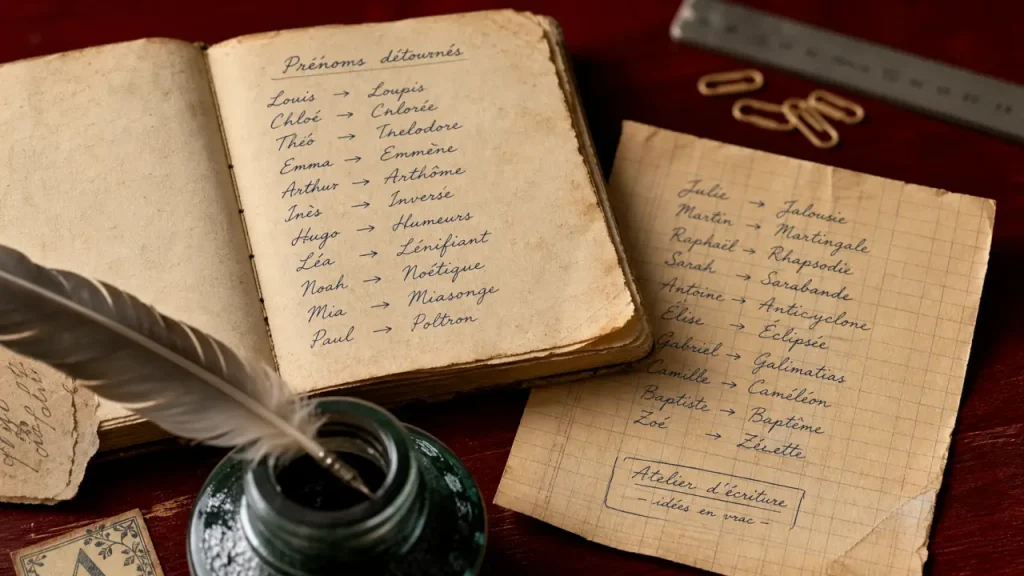 Prénoms détournés
Louis → Loupis
Chloé → Chlorée
Théo → Thelodore
Emma → Emmène
Arthur → Arthôme
Inès → Inverse
Hugo → Humeurs
Léa → Lénifiant
Noah → Noétique
Mia → Miasonge
Paul → Poltron
Julie → Jalousie
Martin → Martingale
Raphaël → Rhapsodie
Sarah → Sarabande
Antoine → Anticyclone
Élise → Éclipsée
Gabriel → Galimatias
Camille → Caméléon
Baptiste → Baptême
Zoé →
Atelier d'écriture
- idées en vrac -